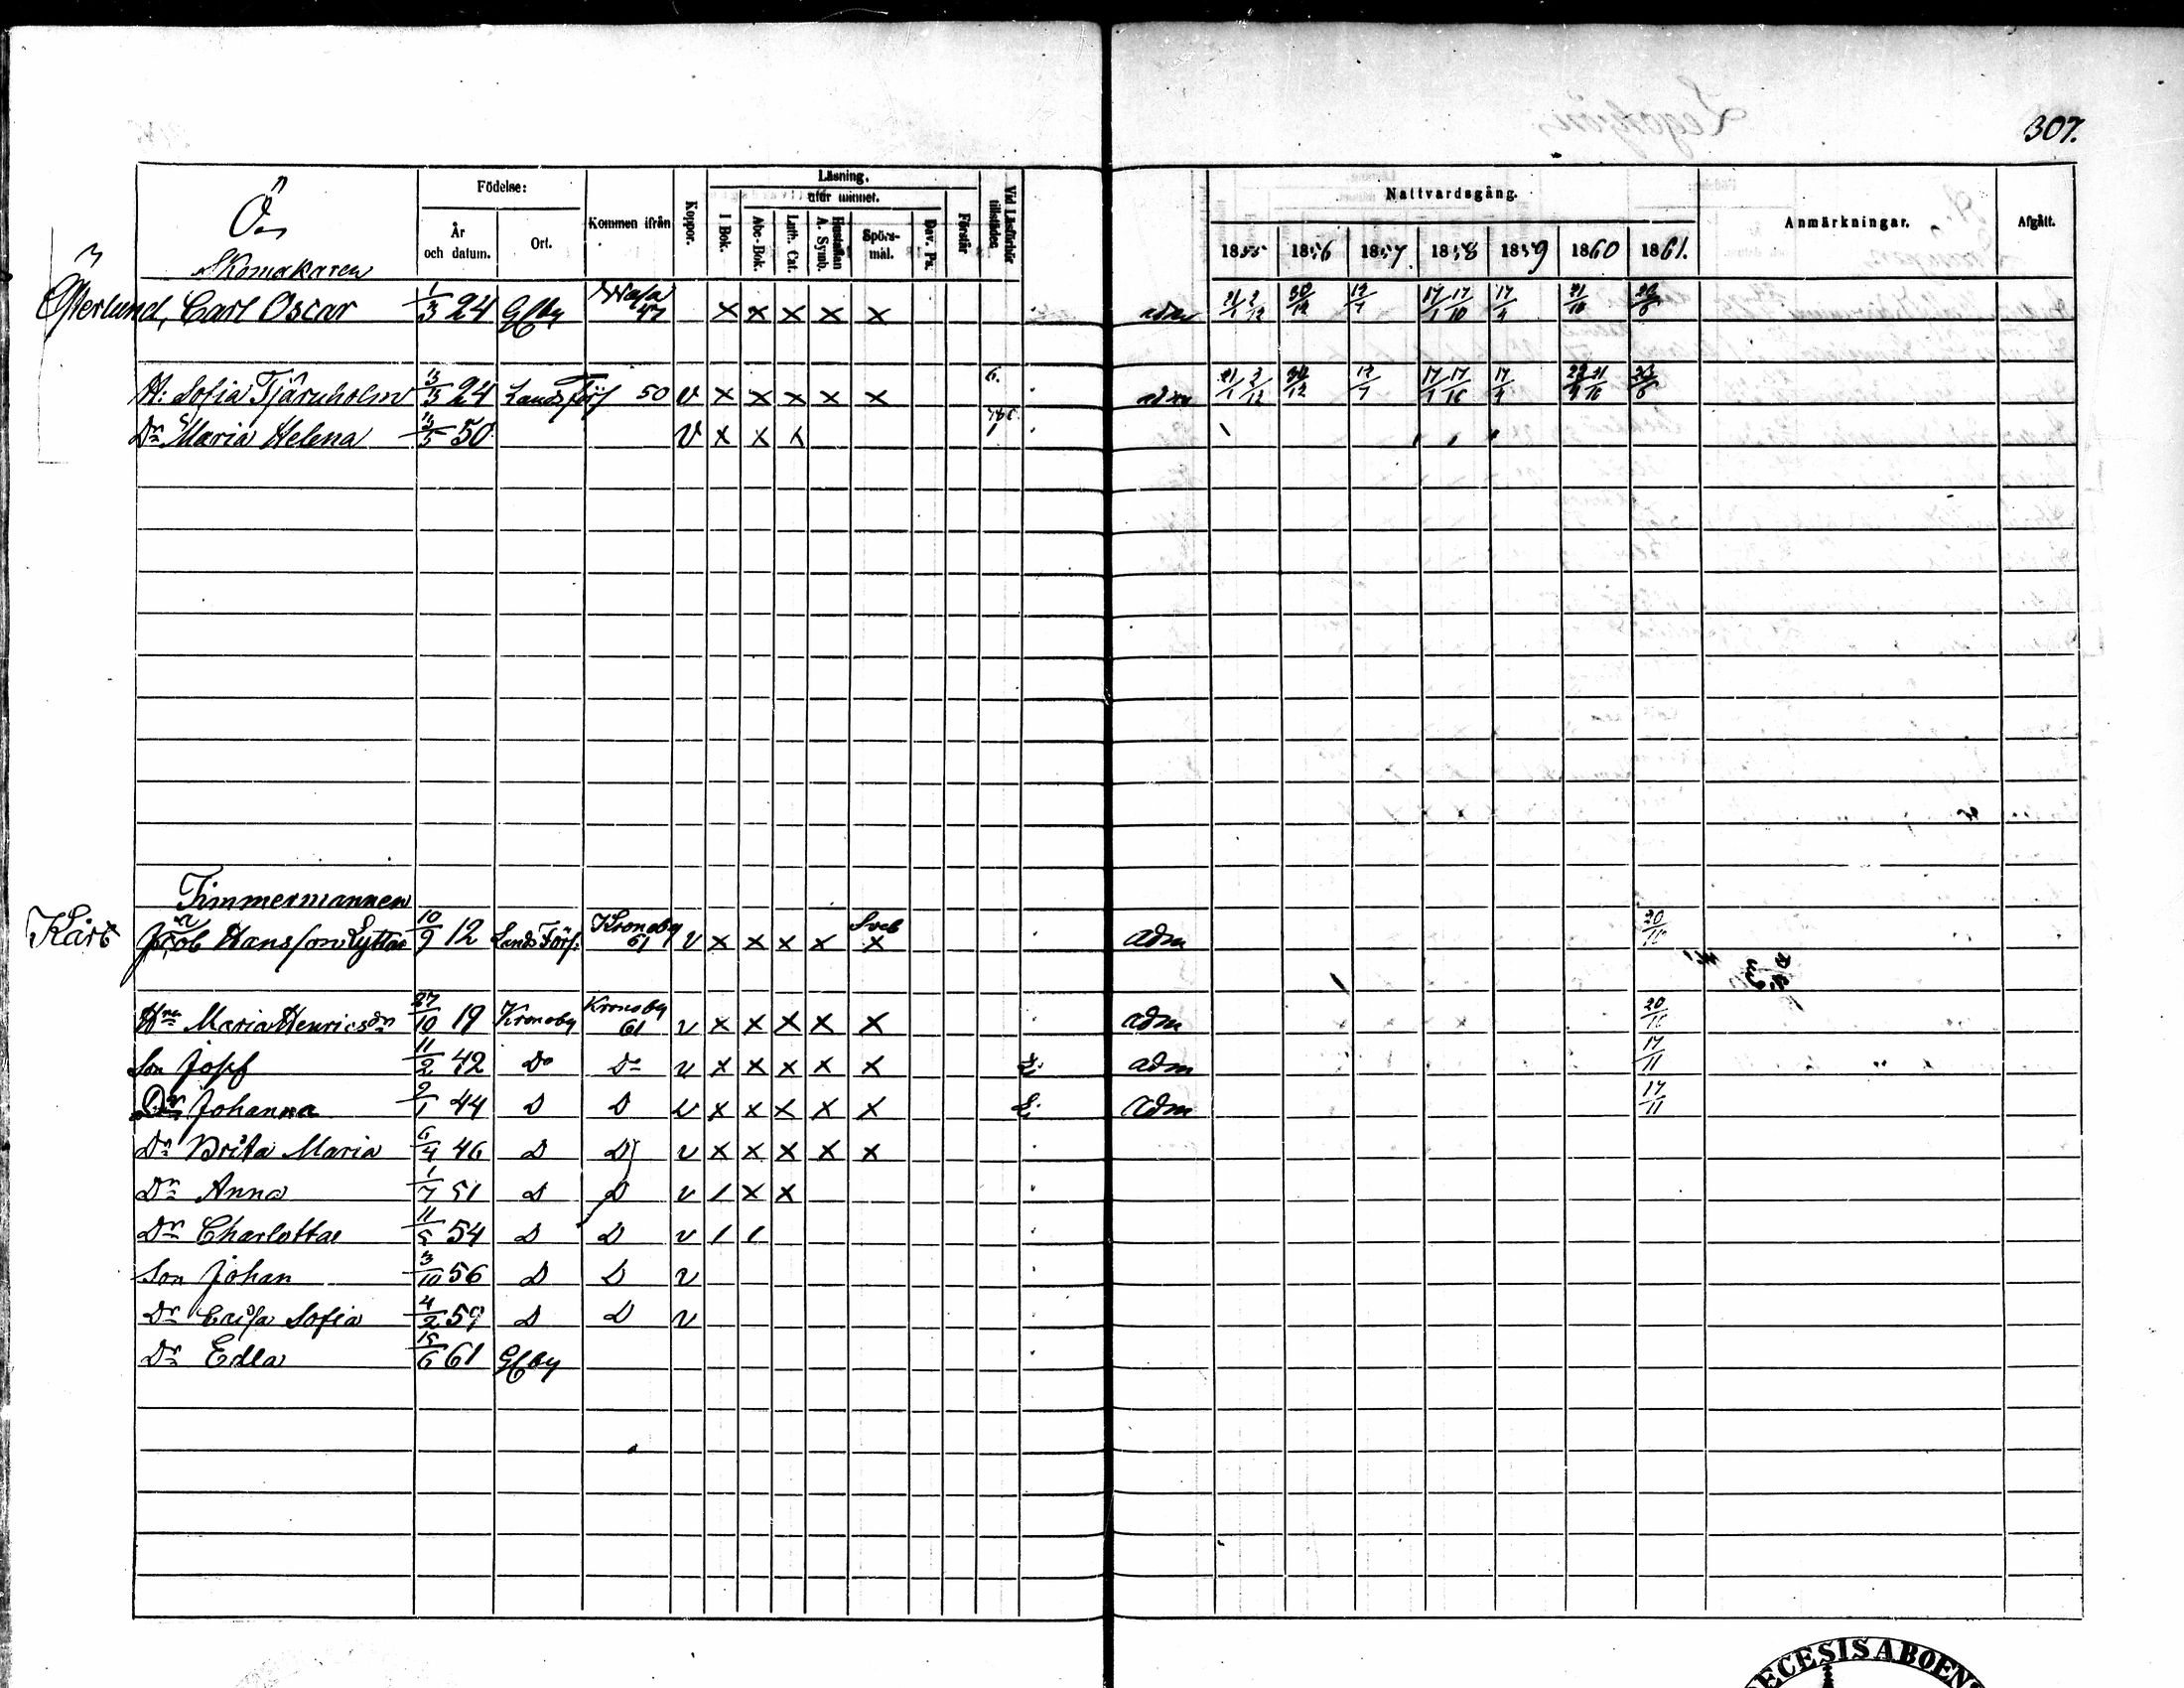 307.
Ö.
Födelse:
År och datum.
Ort.
Kommen ifrån
Koppor.
Läsning.
I Bok.
utur minnet.
Abc-Bok.
Luth. Cat.
Hustaflan A. Symb.
Spörsmål.
Dav. Ps.
Förstår
Vid Läsförhör tillstädes.
Nattvardsgång.
1855 1856 1857. 1858 1859 1860 1861.
Anmärkningar.
Afgått.
Skomakaren
Österlund, Carl Oscar 1/3 24 Gfby Wasa 47 x x x x x adm 21/1 2/12 30/12 12/7 17/1 17/10 17/4 21/10 23/6
H: Sofia Tjärnholm 13/3 24 Lands Förs 50 V x x x x x 6. adm 21/1 2/12 30/12 12/7 17/1 17/10 17/4 21/10 23/6
Dr Maria Helena 50 V x x x
Timmermannen
Kårt Jacob Hansson Lyttar 10/9 12 Lands Förs: Kronoby 61 v x x x x x adm 20/10
Hru Maria Henricsdr 27/10 19 Kronoby Kronoby 61 v x x x x x adm 20/10
Son Josef 11/2 42 Do Do v x x x x x adm 17/11
Dr Johanna 2/1 44 D D v x x x x x adm 17/11
Dr Brita Maria 6/4 46 D D v x x x x x
Dr Anna 1/7 51 D D v / x x
Dr Charlotta 11/5 54 D D v / /
Son Johan 3/10 56 D D v
Dr Caisa Sofia 4/2 59 D D v
Dr Edla 15/6 61 Gfby
ECESIS ABOENS